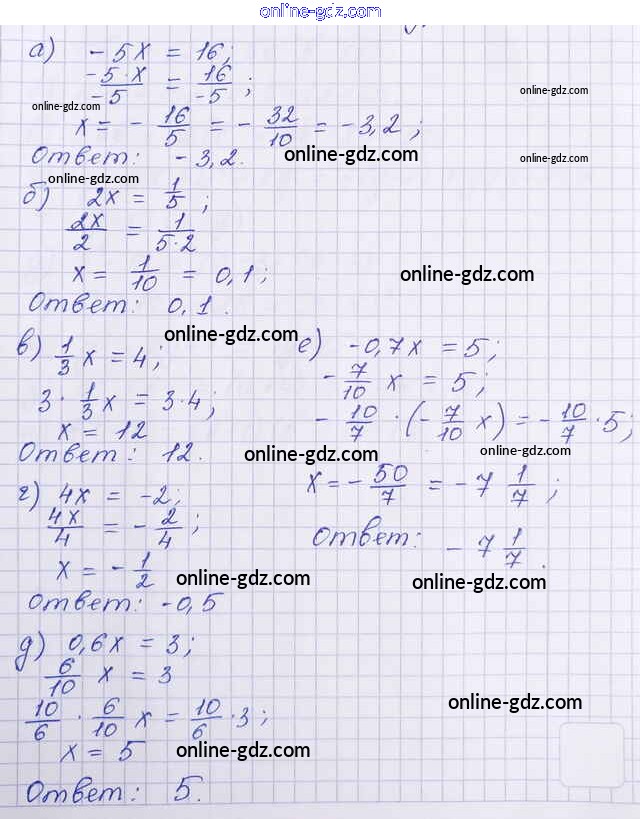 online-gdz.com
а) -5x = 16;
-5·x/-5 = 16/-5;
x = -16/5 = -32/10 = -3,2;
Ответ: -3,2.
б) 2x = 1/5;
2x/2 = 1/5·2
x = 1/10 = 0,1;
Ответ: 0,1.
в) 1/3 x = 4;
3·1/3 x = 3·4;
x = 12
Ответ: 12.
г) 4x = -2;
4x/4 = -2/4;
x = -1/2
Ответ: -0,5
д) 0,6x = 3;
6/10 x = 3
10/6 · 6/10 x = 10/6 · 3;
x = 5
Ответ: 5.
е) -0,7x = 5;
-7/10 x = 5;
-10/7 · (-7/10 x) = -10/7 · 5;
x = -50/7 = -7 1/7;
Ответ: -7 1/7.
online-gdz.com
online-gdz.com
online-gdz.com
online-gdz.com
online-gdz.com
online-gdz.com
online-gdz.com
online-gdz.com
online-gdz.com
online-gdz.com
online-gdz.com
online-gdz.com
online-gdz.com